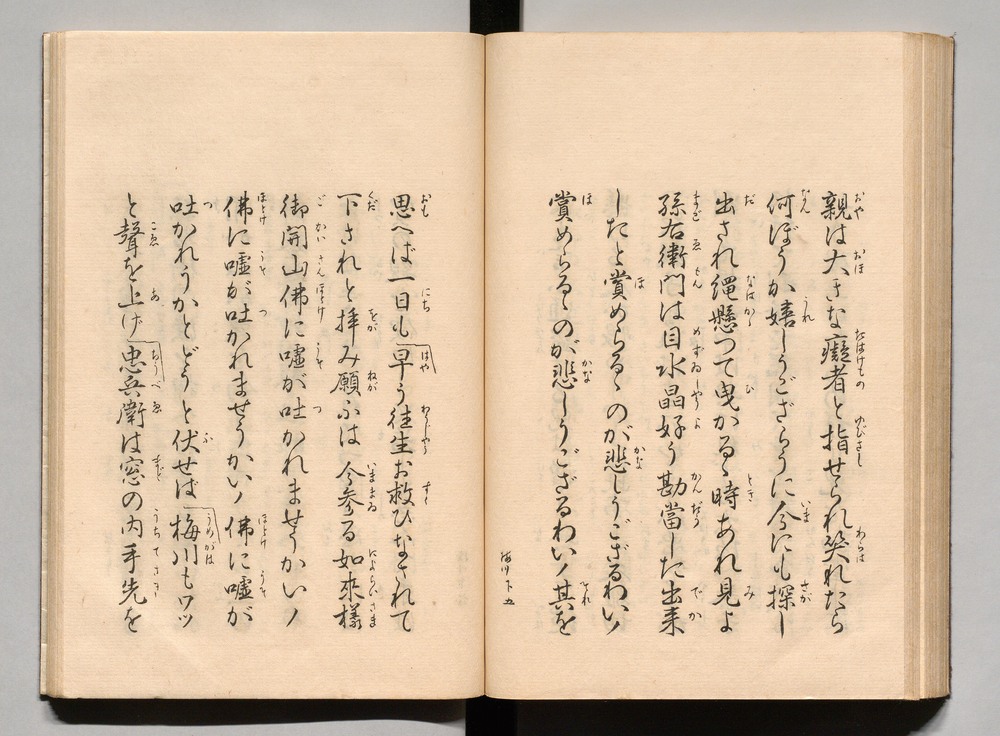 親は大きな癡者と指せられ笑れたら
何ぼうか嬉しうござらうに今にも探し
出され縄懸つて曳かるゝ時あれ見よ
孫右衛門は目水晶好う勘當した出来
したと賞めらるゝのが悲しうござるわいノ
賞めらるゝのが悲しうござるわいノ其を
梅川 下 五
思へば一日も早う往生お救ひなされて
下されと拝み願ふは今参る如來様
御開山佛に嘘が吐かれませうかいノ
佛に嘘が吐かれませうかいノ佛に嘘が
吐かれうかとどうと伏せば梅川もワッ
と聲を上げ忠兵衛は窓の内手先を